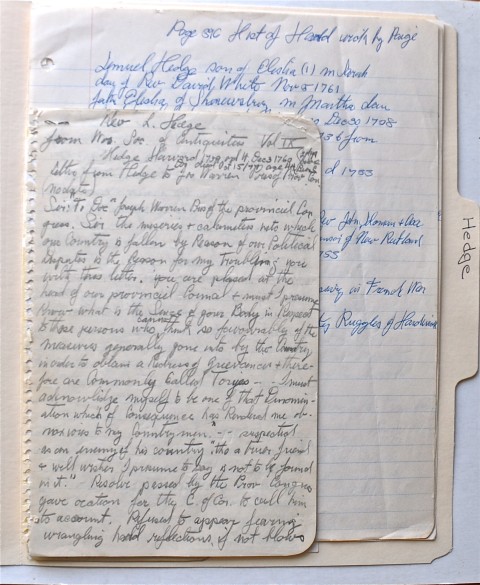 Page 390 Hist of Hard wrote by Paige
Lemuel Hedge son of Elisha (1) m Sarah
dau of Rev David White Nov 5 1761
fath Elisha, of Shrewsbury, m Martha dau
Dec 30 1708
36 from
d 1753
Rev John, Hanson +
of New Rutland
55
in French War
Ruggles of Hardwick
Hedge
Rev L. Hedge
from Wor. Soc. of Antiquities Vol IX
Hedge Harvard 1759, ord Dec 3 1760
Oct 15 1777 age 44
letter from Hedge to Jos Warren Pres of Prov. Con
Sir: To Doc Joseph Warren Pres of the provincial Con
gress. Sir the miseries + calamities into which
our Country is fallen by Reason of our Political
Disputes is the Reason for my Troubling you
with this letter. you are placed at the
head of our provincial Counsel + must I presume
know what is the Sense of your Body in Respect
to those persons who cannot think so favourably of the
measures generally gone into by the Country,
in order to obtain a Redress of Grievances + there-
fore are Commonly Called Toryes - - I must
acknowledge myself to be one of that Denomin-
ation which of Consequence has Rendered me ob-
noxious to my Countrymen." -- suspected
as an enemy of his country "tho a truer friend
+ well wisher I presume to say is not to be found
in it." Resolve passed by the Prov. Congress
gave ocation for the C. of Cor. to call him
to account. Refused to appear fearing
wrangling hard reflections, if not blows